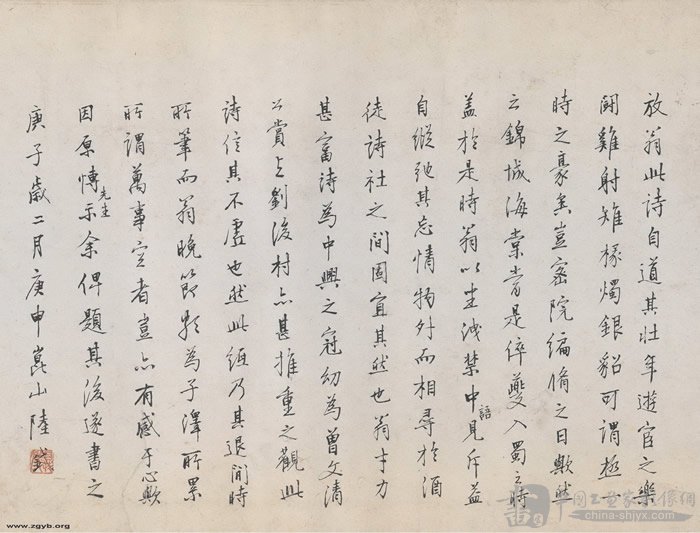 放翁此詩自道其壯年遊宦之樂
鬪雞射雉椽燭銀貂可謂極一
時之豪矣豈密院編脩之日歟然
云錦城海棠當是倅夔入蜀之時
蓋於是時翁以坐洩禁中語見斥益
自縱弛其忘情物外而相尋於酒
徒詩社之間固宜其然也翁才力
甚富詩為中興之冠幼為曾文清
公賞乞劉後村亦甚推重之觀此
詩信其不虛也然此紙乃其退閒時
所筆而翁晚節頗為子澤所累
所謂萬事空者豈亦有感于心歟
因原博先生示余俾題其後遂書之
庚子歲二月庚申崑山陸
www.zgyb.org
中國工藝家影像網
china-shjyx.com